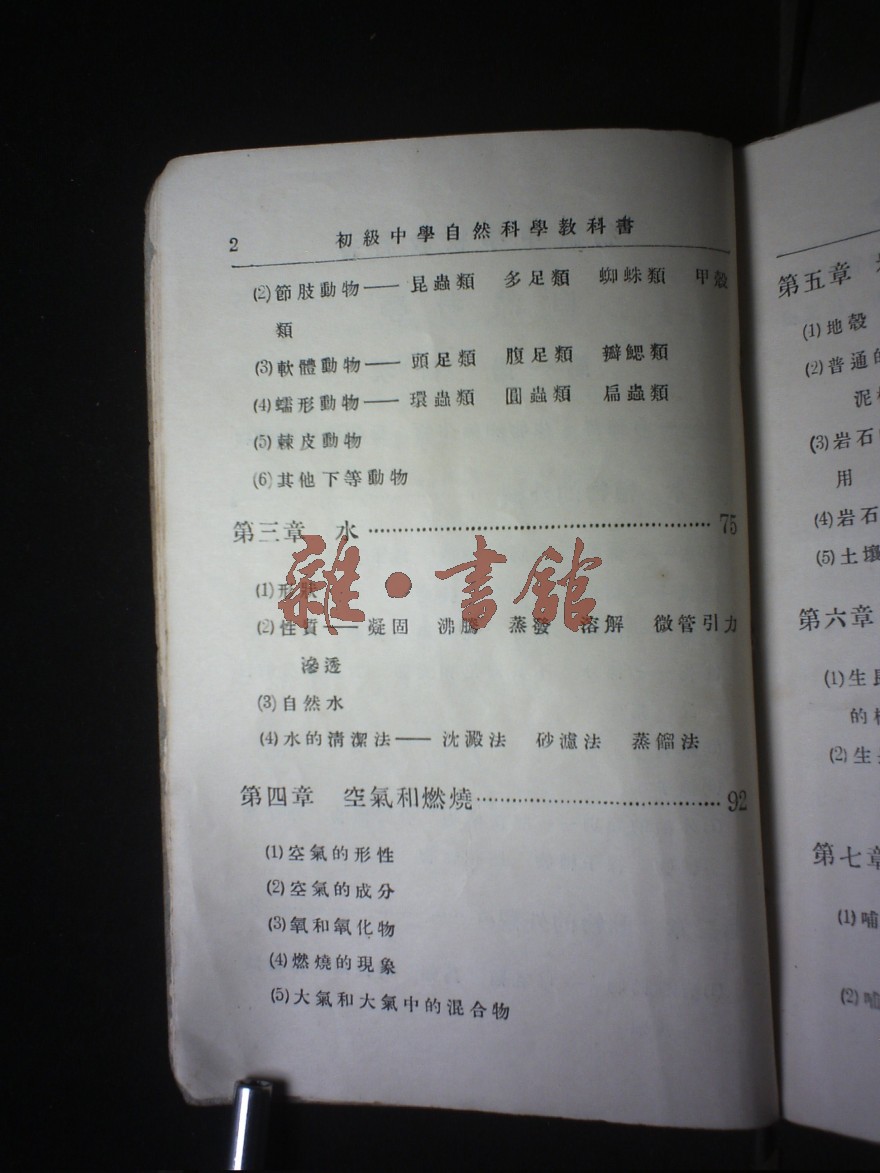 2 初級中學自然科學教科書
(2)節肢動物——昆蟲類 多足類 蜘蛛類 甲殼
類
(3)軟體動物——頭足類 腹足類 瓣鰓類
(4)蠕形動物——環蟲類 圓蟲類 扁蟲類
(5)棘皮動物
(6)其他下等動物
第三章 水……75
(1)形狀
(2)性質——凝固 沸騰 蒸發 溶解 微管引力
滲透
(3)自然水
(4)水的清潔法——沈澱法 砂濾法 蒸餾法
第四章 空氣和燃燒……92
(1)空氣的形性
(2)空氣的成分
(3)氧和氧化物
(4)燃燒的現象
(5)大氣和大氣中的混合物
雜·書館
第五章
(1)地殼
(2)普通的
泥
(3)岩石
用
(4)岩石
(5)土壤
第六章
(1)生
的
(2)生
第七章
(1)哺
(2)哺